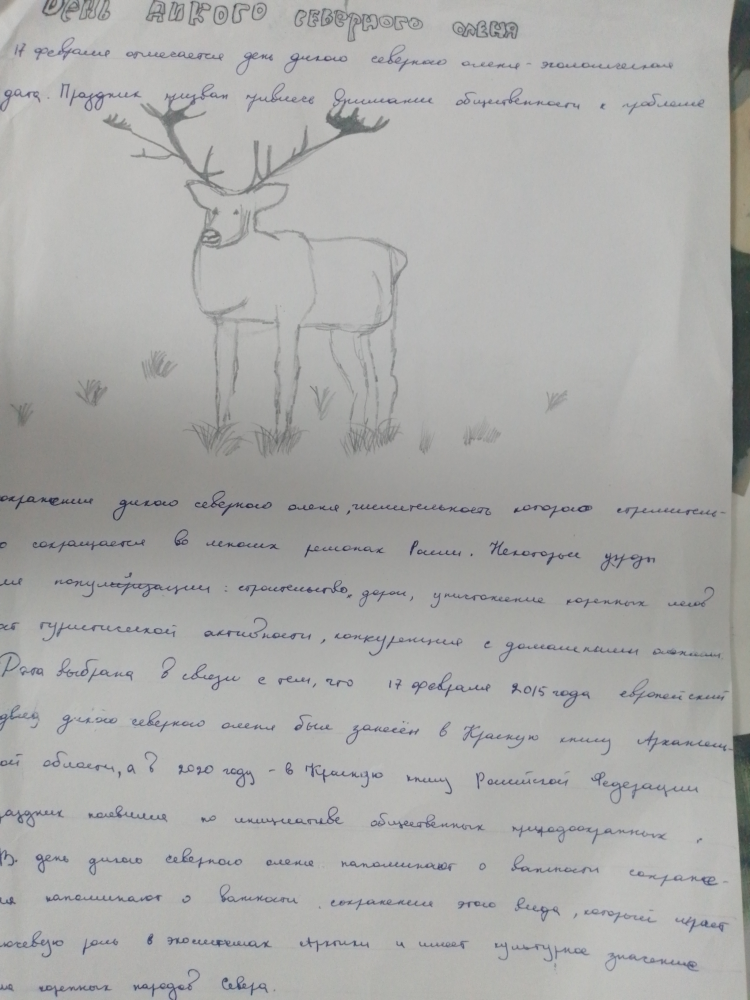 ДЕНЬ ДИКОГО СЕВЕРНОГО ОЛЕНЯ
17 февраля отмечается день дикого северного оленя - экологическая
дата. Праздник призван привлечь внимание общественности к проблеме
охранения дикого северного оленя, численность которого стремитель-
о сокращается во многих регионах России. Некоторые угрозы
ля популяризации: строительство дорог, уничтожение коренных лесов
ст туристической активности, конкуренция с домашними оленями.
Дата выбрана в связи с тем, что 17 февраля 2015 года европейский
двид дикого северного оленя был занесён в Красную книгу Архангель-
ой области, а в 2020 году - в Красную книгу Российской Федерации
раздник появился по инициативе общественных природоохранных.
В день дикого северного оленя напоминают о важности сохране-
ия напоминают о важности сохранения этого вида, который играет
лючевую роль в экосистемах Арктики и имеет культурное значение
ля коренных народов Севера.